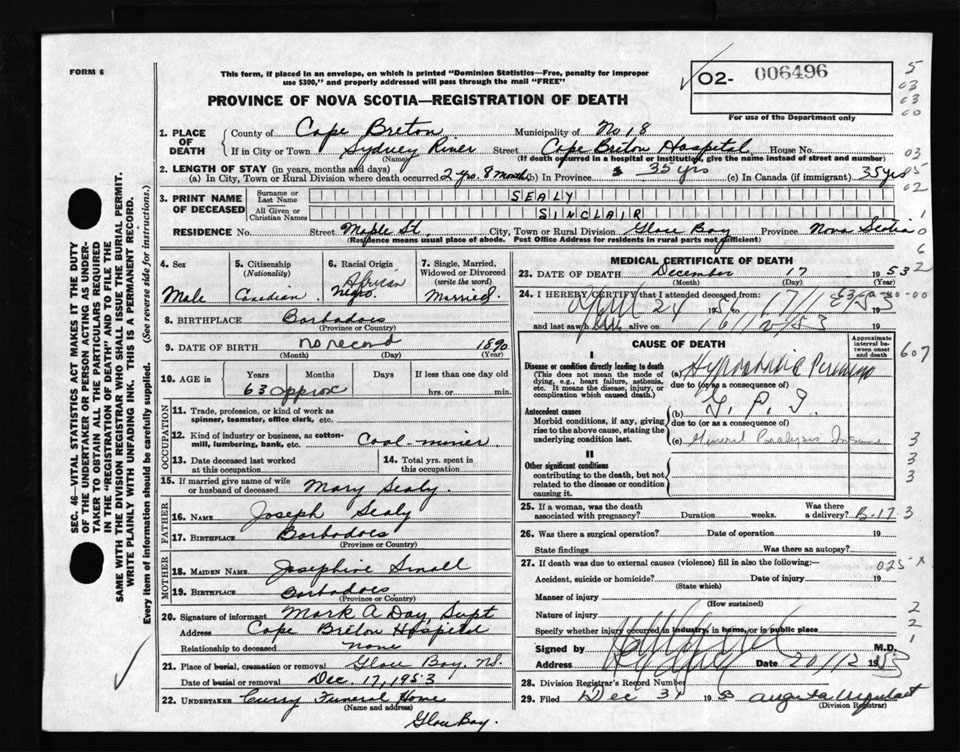 FORM 6
This form, if placed in an envelope, on which is printed "Dominion Statistics—Free, penalty for improper
use $300," and properly addressed will pass through the mail "FREE"
PROVINCE OF NOVA SCOTIA—REGISTRATION OF DEATH
O2- 006496
For use of the Department only
SEC. 46—VITAL STATISTICS ACT MAKES IT THE DUTY
OF THE UNDERTAKER OR PERSON ACTING AS UNDER-
TAKER TO OBTAIN ALL THE PARTICULARS REQUIRED
IN THE "REGISTRATION OF DEATH" AND TO FILE THE
SAME WITH THE DIVISION REGISTRAR WHO SHALL ISSUE THE BURIAL PERMIT.
WRITE PLAINLY WITH UNFADING INK. THIS IS A PERMANENT RECORD.
Every item of information should be carefully supplied. (See reverse side for instructions.)
1. PLACE OF DEATH
County of Cape Breton Municipality of No 18
If in City or Town Sydney River Street Cape Briton Hospital House No.
(Name) (If death occurred in a hospital or institution, give the name instead of street and number)
2. LENGTH OF STAY (in years, months and days)
(a) In City, Town or Rural Division where death occurred 2 yrs. 8 months (b) In Province 35 yrs (c) In Canada (if immigrant) 35 yrs
3. PRINT NAME OF DECEASED
Surname or Last Name SEALY
All Given or Christian Names SINCLAIR
RESIDENCE No. Street Maple St. City, Town or Rural Division Glace Bay Province Nova Scotia
(Residence means usual place of abode. Post Office Address for residents in rural parts not sufficient)
4. Sex Male
5. Citizenship (Nationality) Canadian
6. Racial Origin African Negro.
7. Single, Married, Widowed or Divorced (write the word) Married
8. BIRTHPLACE Barbadoes
(Province or Country)
9. DATE OF BIRTH no record 1890
(Month) (Day) (Year)
10. AGE in Years Months Days If less than one day old
63 approx hrs. or min.
OCCUPATION
11. Trade, profession, or kind of work as
spinner, teamster, office clerk, etc.
12. Kind of industry or business, as cotton-
mill, lumbering, bank, etc. Coal-minier
13. Date deceased last worked
at this occupation
14. Total yrs. spent in
this occupation
15. If married give name of wife
or husband of deceased Mary Sealy.
FATHER
16. NAME Joseph Sealy
17. BIRTHPLACE Barbadoes
(Province or Country)
MOTHER
18. MAIDEN NAME Josephine Small
19. BIRTHPLACE Barbadoes
(Province or Country)
20. Signature of informant Mark A Day, Supt
Address Cape Breton Hospital
Relationship to deceased none
21. Place of burial, cremation or removal Glace Bay, NS.
Date of burial or removal Dec. 17, 1953
22. UNDERTAKER Curry Funeral Home
(Name and address)
Glace Bay.
MEDICAL CERTIFICATE OF DEATH
23. DATE OF DEATH December 17 1953
(Month) (Day)
24. I HEREBY CERTIFY that I attended deceased from:
and last saw alive on 16/12/53 19
CAUSE OF DEATH
Approximate interval between onset and death
I
Disease or condition directly leading to death
(This does not mean the mode of
dying, e.g., heart failure, asthenia,
etc. It means the disease, injury, or
complication which caused death.)
(a)
due to (or as a consequence of)
Antecedent causes
Morbid conditions, if any, giving
rise to the above cause, stating the
underlying condition last.
(b) G. P. I.
due to (or as a consequence of)
(c) General Paralysis Insane
II
Other significant conditions
contributing to the death, but not
related to the disease or condition
causing it.
25. If a woman, was the death
associated with pregnancy? Duration weeks. Was there
a delivery? B-17
26. Was there a surgical operation? Date of operation 19
State findings Was there an autopsy?
27. If death was due to external causes (violence) fill in also the following:—
Accident, suicide or homicide? Date of injury 19
(State which)
Manner of injury
(How sustained)
Nature of injury
Specify whether injury occurred in industry, in home, or in public place
Signed by M.D.
Address Date 20/12 1953
28. Division Registrar's Record Number
29. Filed Dec 31 1953
(Division Registrar)
5
03
03
00
03
05
02
1
0
6
2
607
3
3
3
3
025-x
2
2
1